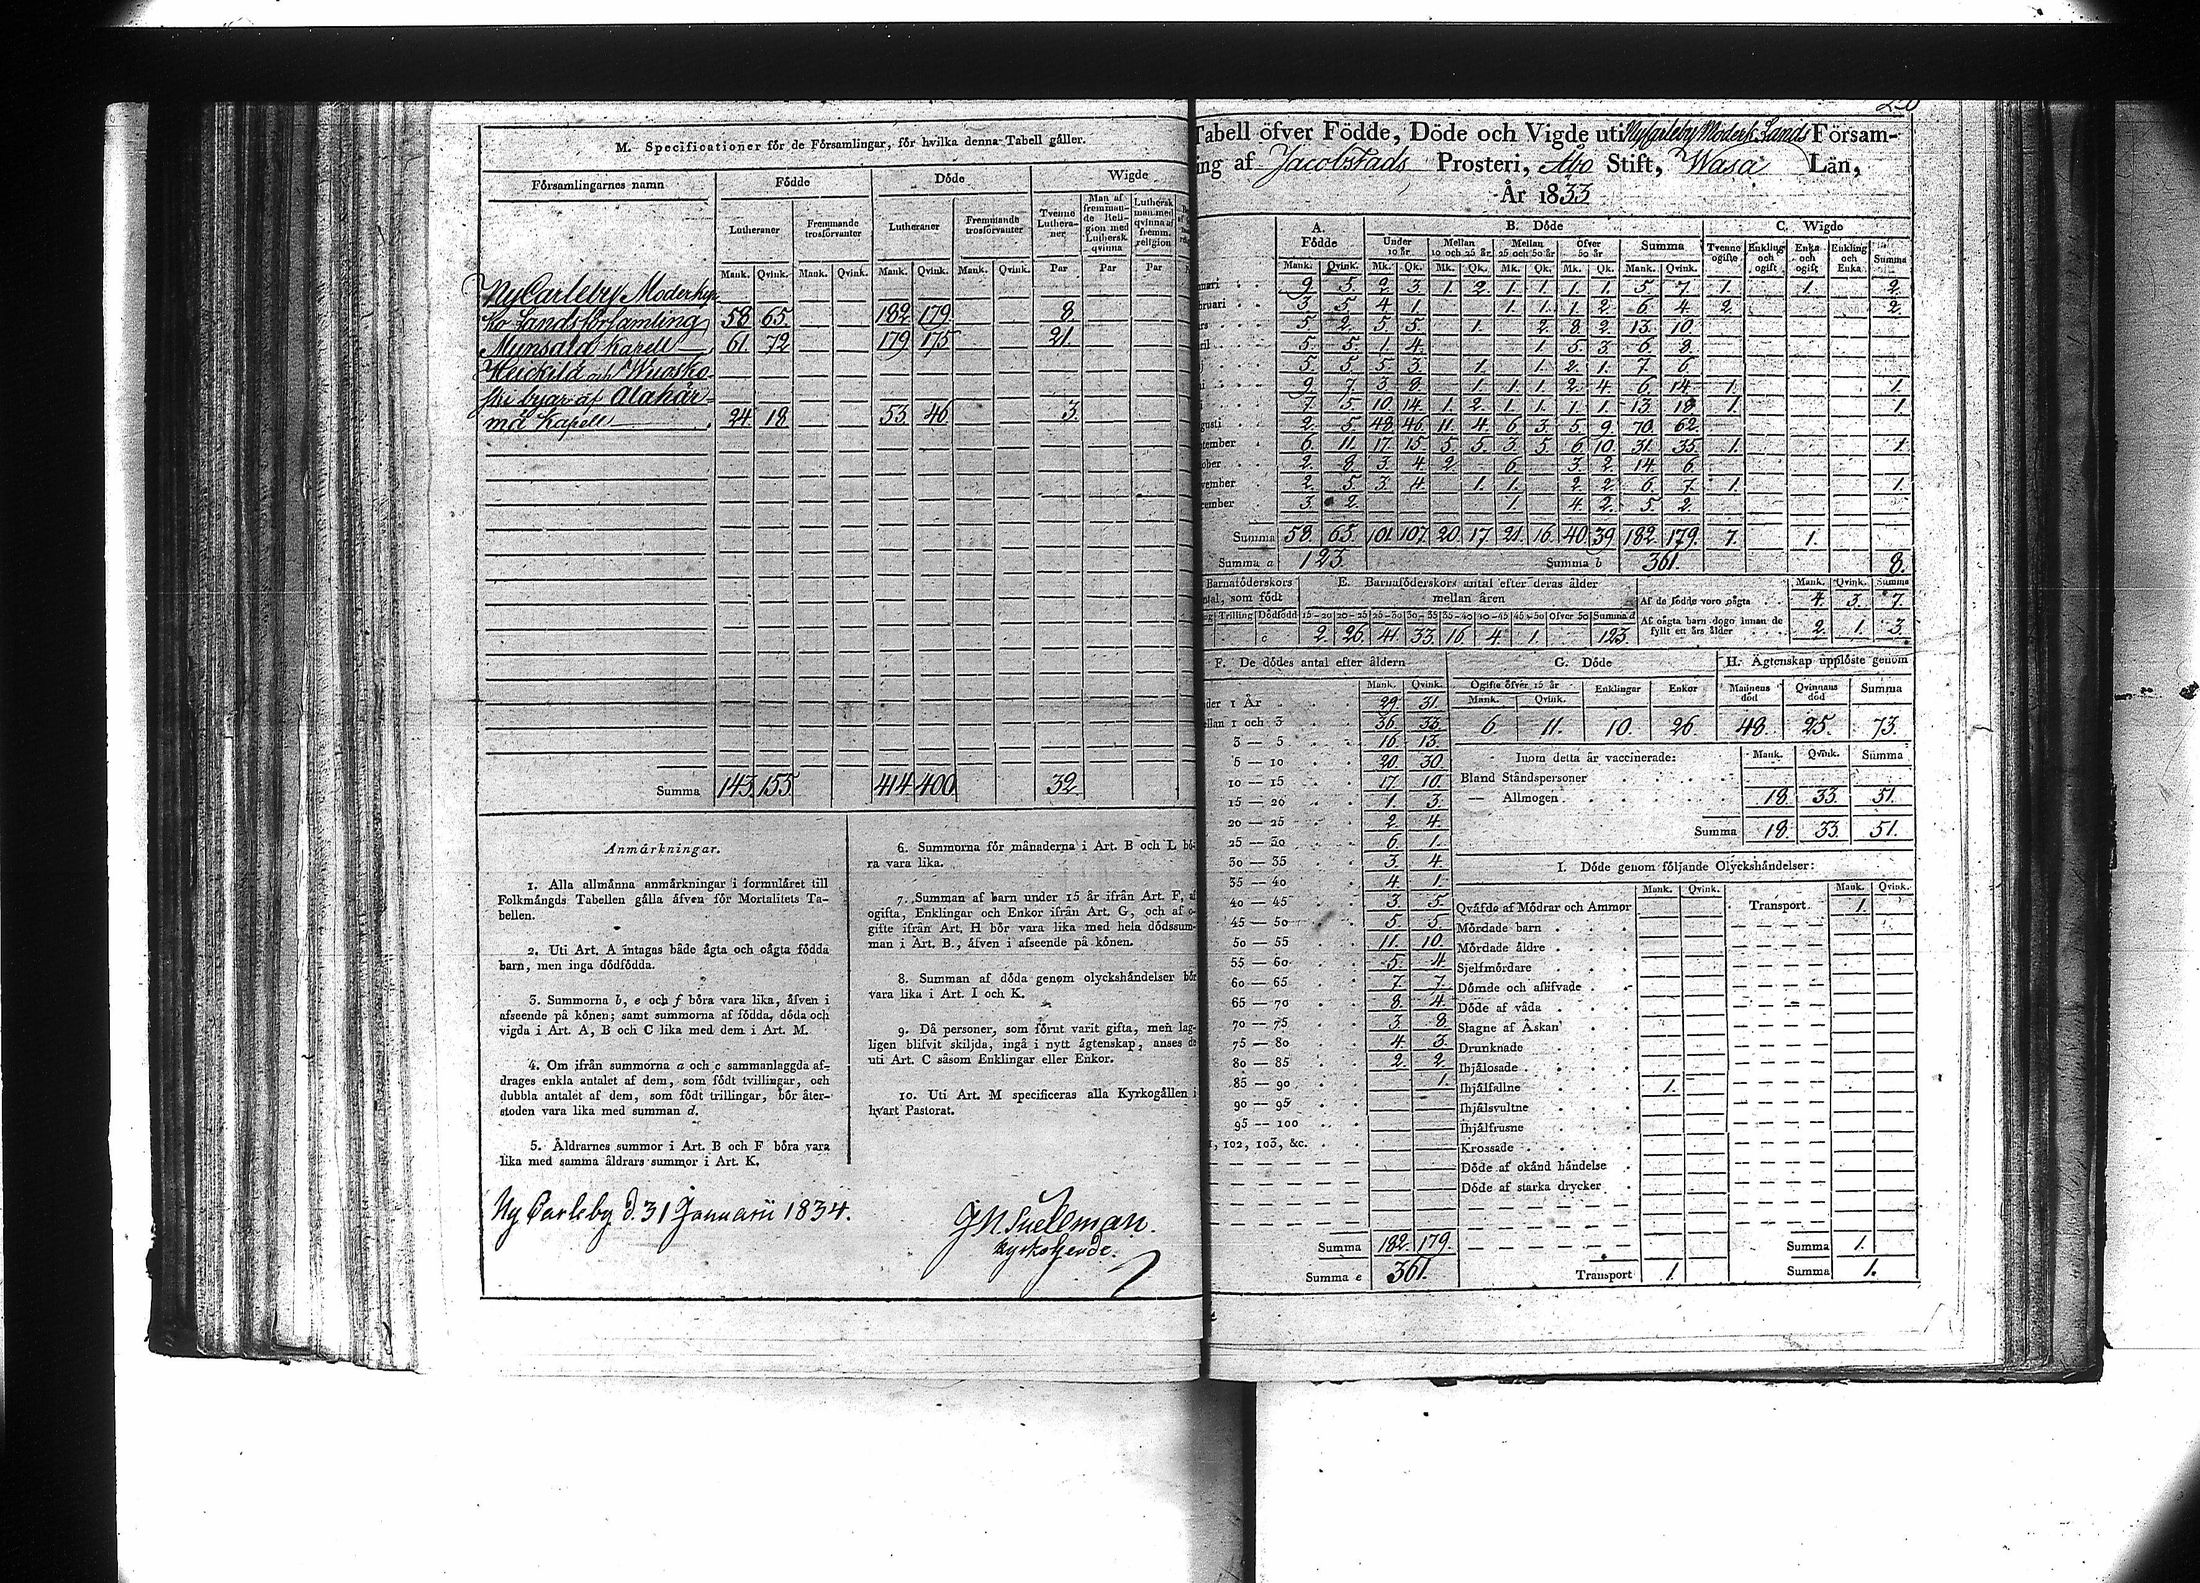 M. Specificationer för de Församlingar, för hvilka denna Tabell gäller.
Församlingarnes namn Födde Döde Wigde
Lutheraner Fremmande trosförvanter Lutheraner Fremmande trosförvanter Tvenne Lutheraner Man af fremmande Religion med Luthersk qvinna Luthersk man med qvinna af fremm. religion
Mank. Qvink. Mank. Qvink. Mank. Qvink. Mank. Qvink. Par Par Par
NyCarleby Moderkyr
ko Landsförsamling 58 65. 182 179. 8
Munsala Kapell 61. 72 179 175 21.
Heickilä och Wuosko
ski byar af Alahär
mä Kapell 24. 18. 53. 46 3.
Summa 143 155 414 400 32
Anmärkningar.
1. Alla allmänna anmärkningar i formuläret till
Folkmängds Tabellen gälla äfven för Mortalitets Ta-
bellen.
2. Uti Art. A intagas både ägta och oägta födda
barn, men inga dödfödda.
3. Summorna b, e och f böra vara lika, äfven i
afseende på könen; samt summorna af födda, döda och
vigda i Art. A, B och C lika med dem i Art. M.
4. Om ifrån summorna a och c sammanlaggda af-
drages enkla antalet af dem, som födt tvillingar, och
dubbla antalet af dem, som födt trillingar, bör åter-
stoden vara lika med summan d.
5. Åldrarnes summor i Art. B och F böra vara
lika med samma åldrars summor i Art. K.
6. Summorna för månaderna i Art. B och L bö-
ra vara lika.
7. Summan af barn under 15 år ifrån Art. F, af
ogifta, Enklingar och Enkor ifrån Art. G, och af o-
gifte ifrån Art. H bör vara lika med hela dödssum-
man i Art. B., äfven i afseende på könen.
8. Summan af döda genom olyckshändelser bör
vara lika i Art. I och K.
9. Då personer, som förut varit gifta, men lag-
ligen blifvit skiljda, ingå i nytt ägtenskap, anses de
uti Art. C såsom Enklingar eller Enkor.
10. Uti Art. M specificeras alla Kyrkogällen i
hvart Pastorat.
Ny Carleby d. 31 Januarii 1834.
Kyrkoherde.
Tabell öfver Födde, Döde och Vigde uti Nycarleby Moderk. Lands Försam-
ing af Jacobstads Prosteri, Åbo Stift, Wasa Län,
År 1833
A. Födde B. Döde C. Wigde
Under 10 år. Mellan 10 och 25 år. Mellan 25 och 50 år Öfver 50 år Summa Tvenne ogifte Enkling och ogift Enka och ogift Enkling och Enka Summa
Mank. Qvink. Mk. Qk. Mk. Qk. Mk. Qk. Mk. Qk. Mank. Qvink.
nuari 9 5 2 3 1 2 1 1 1 1 5 7 1 1 2
bruari 3 5 4 1 1 1 1 2 6 4 2 2
rs 5 2 5 5 1 2 8 2 13 10
ril 5 5 1 4 1 5 3 6 8
j 5 5 5 3 1 1 2 1 7 6
ni 9 7 3 8 1 1 1 2 4 6 14 1 1
li 7 5 10 14 1 2 1 1 1 1 13 18 1 1
gusti 2 5 48 46 11 4 6 3 5 9 70 62
ptember 6 11 17 15 5 5 3 5 6 10 31 35 1 1
tober 2 8 3 4 2 6 3 2 14 6
vember 2 5 3 4 1 1 2 2 6 7 1 1
cember 3 2 1 4 2 5 2
Summa 58 65 101 107 20 17 21 16 40 39 182 179 7 1
Summa a 123. Summa b 361. 8.
Barnaföderskors
ntal, som födt
Trilling Dödfödd
c
E. Barnaföderskors antal efter deras ålder
mellan åren
15-20 20-25 25-30 30-35 35-40 40-45 45-50 Öfver 50 Summa d
2. 26. 41 33 16 4 1. 123
Mank. Qvink. Summa
Af de födde voro oägta 4. 3. 7.
Af oägta barn dogo innan de
fyllt ett års ålder 2. 1. 3.
F. De dödes antal efter åldern
Mank. Qvink.
der 1 År 29 31.
ellan 1 och 3 36 33
3 — 5 16 13.
5 — 10 20. 30
10 — 15 17 10.
15 — 20 1. 3.
20 — 25 2. 4.
25 — 30 6 1.
30 — 35 3 4.
35 — 40 4 1.
40 — 45 3 5.
45 — 50 5 5.
50 — 55 11. 10.
55 — 60 5 4
60 — 65 7 7.
65 — 70 8 4.
70 — 75 3 8
75 — 80 4 3.
80 — 85 2. 2
85 — 90 1.
90 — 95
95 — 100
1, 102, 103, &c.
Summa 182. 179.
Summa e 361.
G. Döde
Ogifte öfver 15 år Enklingar Enkor
Mank. Qvink.
6. 11. 10. 26.
H. Ägtenskap upplöste genom
Mannens död Qvinnans död Summa
48. 25. 73.
Inom detta år vaccinerade: Mank. Qvink. Summa
Bland Ståndspersoner
— Allmogen 18. 33 51.
Summa 18. 33. 51.
I. Döde genom följande Olyckshändelser:
Mank. Qvink. Mank. Qvink.
Qväfde af Mödrar och Ammor Transport 1.
Mördade barn
Mördade äldre
Sjelfmördare
Dömde och aflifvade
Döde af våda
Slagne af Åskan
Drunknade
Ihjälosade
Ihjälfallne 1.
Ihjälsvultne
Ihjälfrusne
Krossade
Döde af okänd händelse
Döde af starka drycker
Summa 1.
Transport 1. Summa 1.